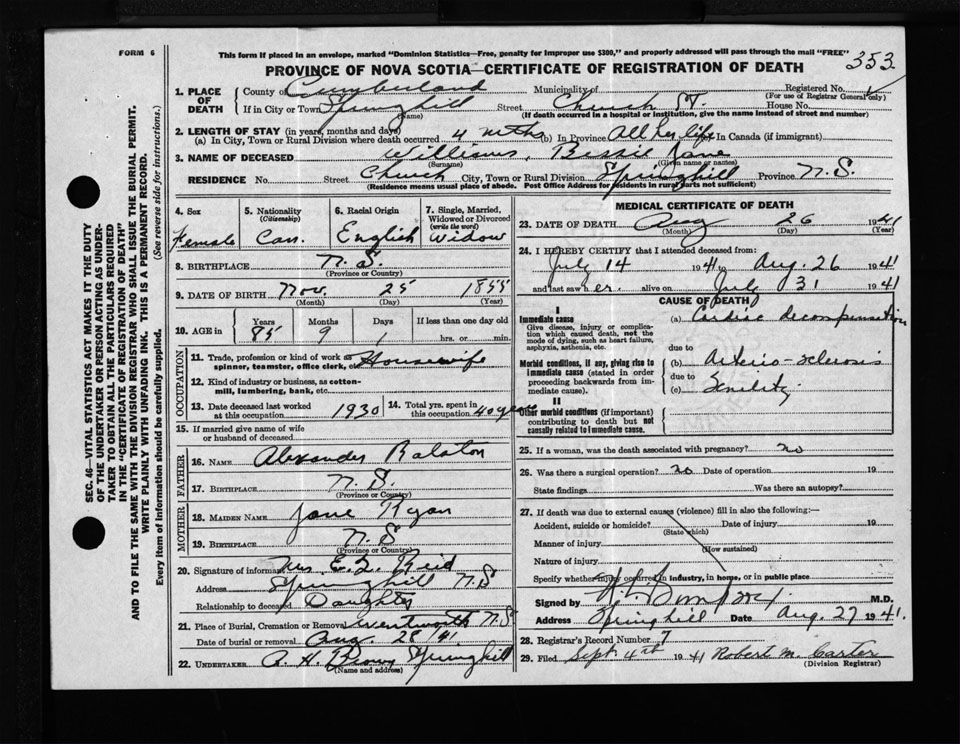 FORM 6
This form if placed in an envelope, marked "Dominion Statistics—Free, penalty for improper use $300," and properly addressed will pass through the mail "FREE"
353
PROVINCE OF NOVA SCOTIA—CERTIFICATE OF REGISTRATION OF DEATH
SEC. 46—VITAL STATISTICS ACT MAKES IT THE DUTY
OF THE UNDERTAKER OR PERSON ACTING AS UNDER-
TAKER TO OBTAIN ALL THE PARTICULARS REQUIRED
IN THE "CERTIFICATE OF REGISTRATION OF DEATH"
AND TO FILE THE SAME WITH THE DIVISION REGISTRAR WHO SHALL ISSUE THE BURIAL PERMIT.
WRITE PLAINLY WITH UNFADING INK. THIS IS A PERMANENT RECORD.
Every item of information should be carefully supplied. (See reverse side for instructions.)
1. PLACE OF DEATH
County of Cumberland Municipality of Registered No.
(For use of Registrar General only)
If in City or Town Springhill Street Church St. House No.
(Name) (If death occurred in a hospital or institution, give the name instead of street and number)
2. LENGTH OF STAY (in years, months and days)
(a) In City, Town or Rural Division where death occurred 4 mths (b) In Province All her life In Canada (if immigrant)
3. NAME OF DECEASED Williams, Bessie Jane
(Surname) (Given name or names)
RESIDENCE No. Street Church City, Town or Rural Division Springhill Province N.S.
(Residence means usual place of abode. Post Office Address for residents in rural parts not sufficient)
4. Sex Female
5. Nationality (Citizenship) Can.
6. Racial Origin English
7. Single, Married, Widowed or Divorced (write the word) Widow
8. BIRTHPLACE N.S.
(Province or Country)
9. DATE OF BIRTH Nov. 25 1855
(Month) (Day) (Year)
10. AGE in Years Months Days If less than one day old
85 9 1 hrs. or min.
OCCUPATION
11. Trade, profession or kind of work as spinner, teamster, office clerk, etc. Housewife
12. Kind of industry or business, as cotton-mill, lumbering, bank, etc.
13. Date deceased last worked at this occupation 1930
14. Total yrs. spent in this occupation 40 years
15. If married give name of wife or husband of deceased
FATHER
16. NAME Alexander Ralston
17. BIRTHPLACE N.S.
(Province or Country)
MOTHER
18. MAIDEN NAME Jane Ryan
19. BIRTHPLACE N.S
(Province or Country)
20. Signature of informant Mrs E.L. Reid
Address Springhill N.S
Relationship to deceased Daughter
21. Place of Burial, Cremation or Removal Wentworth N.S
Date of burial or removal Aug. 28/41
22. UNDERTAKER A. H. Brown Springhill
(Name and address)
MEDICAL CERTIFICATE OF DEATH
23. DATE OF DEATH Aug 26 1941
(Month) (Day) (Year)
24. I HEREBY CERTIFY that I attended deceased from:
July 14 1941 to Aug. 26 1941
and last saw her alive on July 31 1941
CAUSE OF DEATH
I
Immediate cause
Give disease, injury or complica-
tion which caused death, not the
mode of dying, such as heart failure,
asphyxia, asthenia, etc.
(a) Cardiac decompensation
due to
Morbid conditions, if any, giving rise to
immediate cause (stated in order
proceeding backwards from im-
mediate cause).
(b) Arterio-sclerosis
due to
(c) Senility
II
Other morbid conditions (if important)
contributing to death but not
causally related to immediate cause.
25. If a woman, was the death associated with pregnancy? no
26. Was there a surgical operation? no Date of operation 19
State findings Was there an autopsy?
27. If death was due to external causes (violence) fill in also the following:—
Accident, suicide or homicide? Date of injury 19
(State which)
Manner of injury
(How sustained)
Nature of injury
Specify whether injury occurred in industry, in home, or in public place
Signed by M.D.
Address Springhill Date Aug. 27 1941.
28. Registrar's Record Number 7
29. Filed Sept 4th 1941 Robert M. Carter
(Division Registrar)